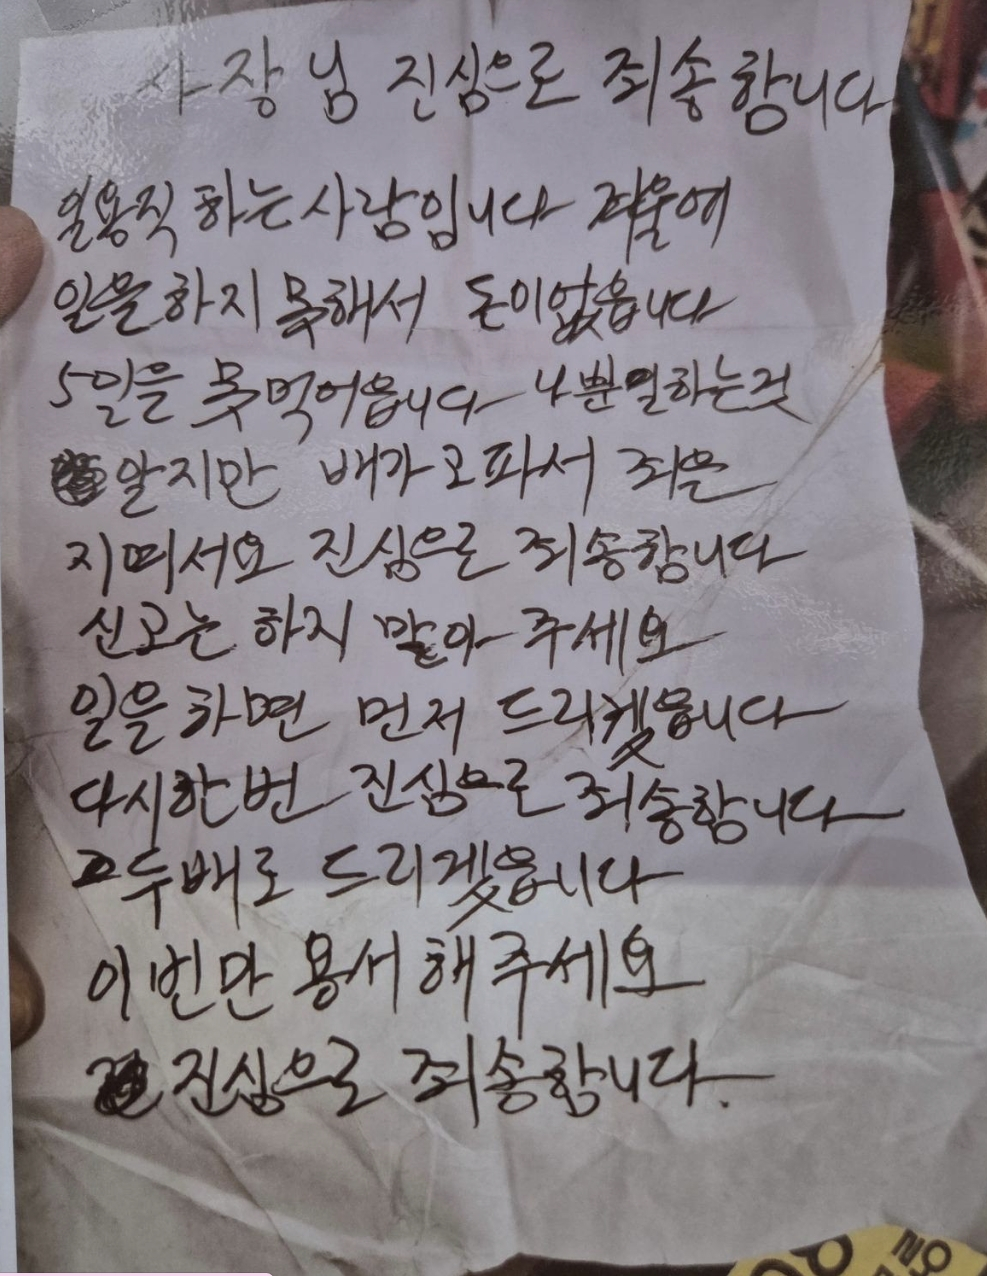 사장님 진심으로 죄송합니다
일용직 하는사람입니다 겨울에
일을하지 못해서 돈이없읍니다
5일을 못먹어읍니다 나뿐일하는것
알지만 배가고파서 죄은
지떠서요 진심으로 죄송합니다
신고는 하지 말아 주세요
일을하면 먼저 드리겠읍니다
다시한번 진심으로 죄송합니다
두배로 드리겠읍니다
이번만 용서해주세요
진심으로 죄송합니다.